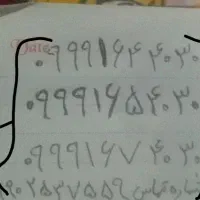 Date
۰۹۹۹۱۶۴۴۰۳۰
۰۹۹۹۱۶۵۴۰۳۰
۰۹۹۹۱۶۷۴۰۳۰
شماره تماس ۹۰۲۵۳۷۵۵۹